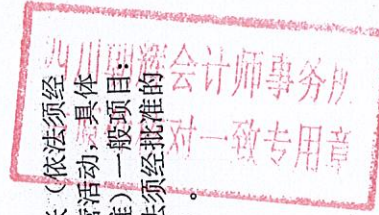 （依法须经
营活动，具体
准）一般项目：
法须经批准的
。
四川国 会计师事务所
对一致专用章